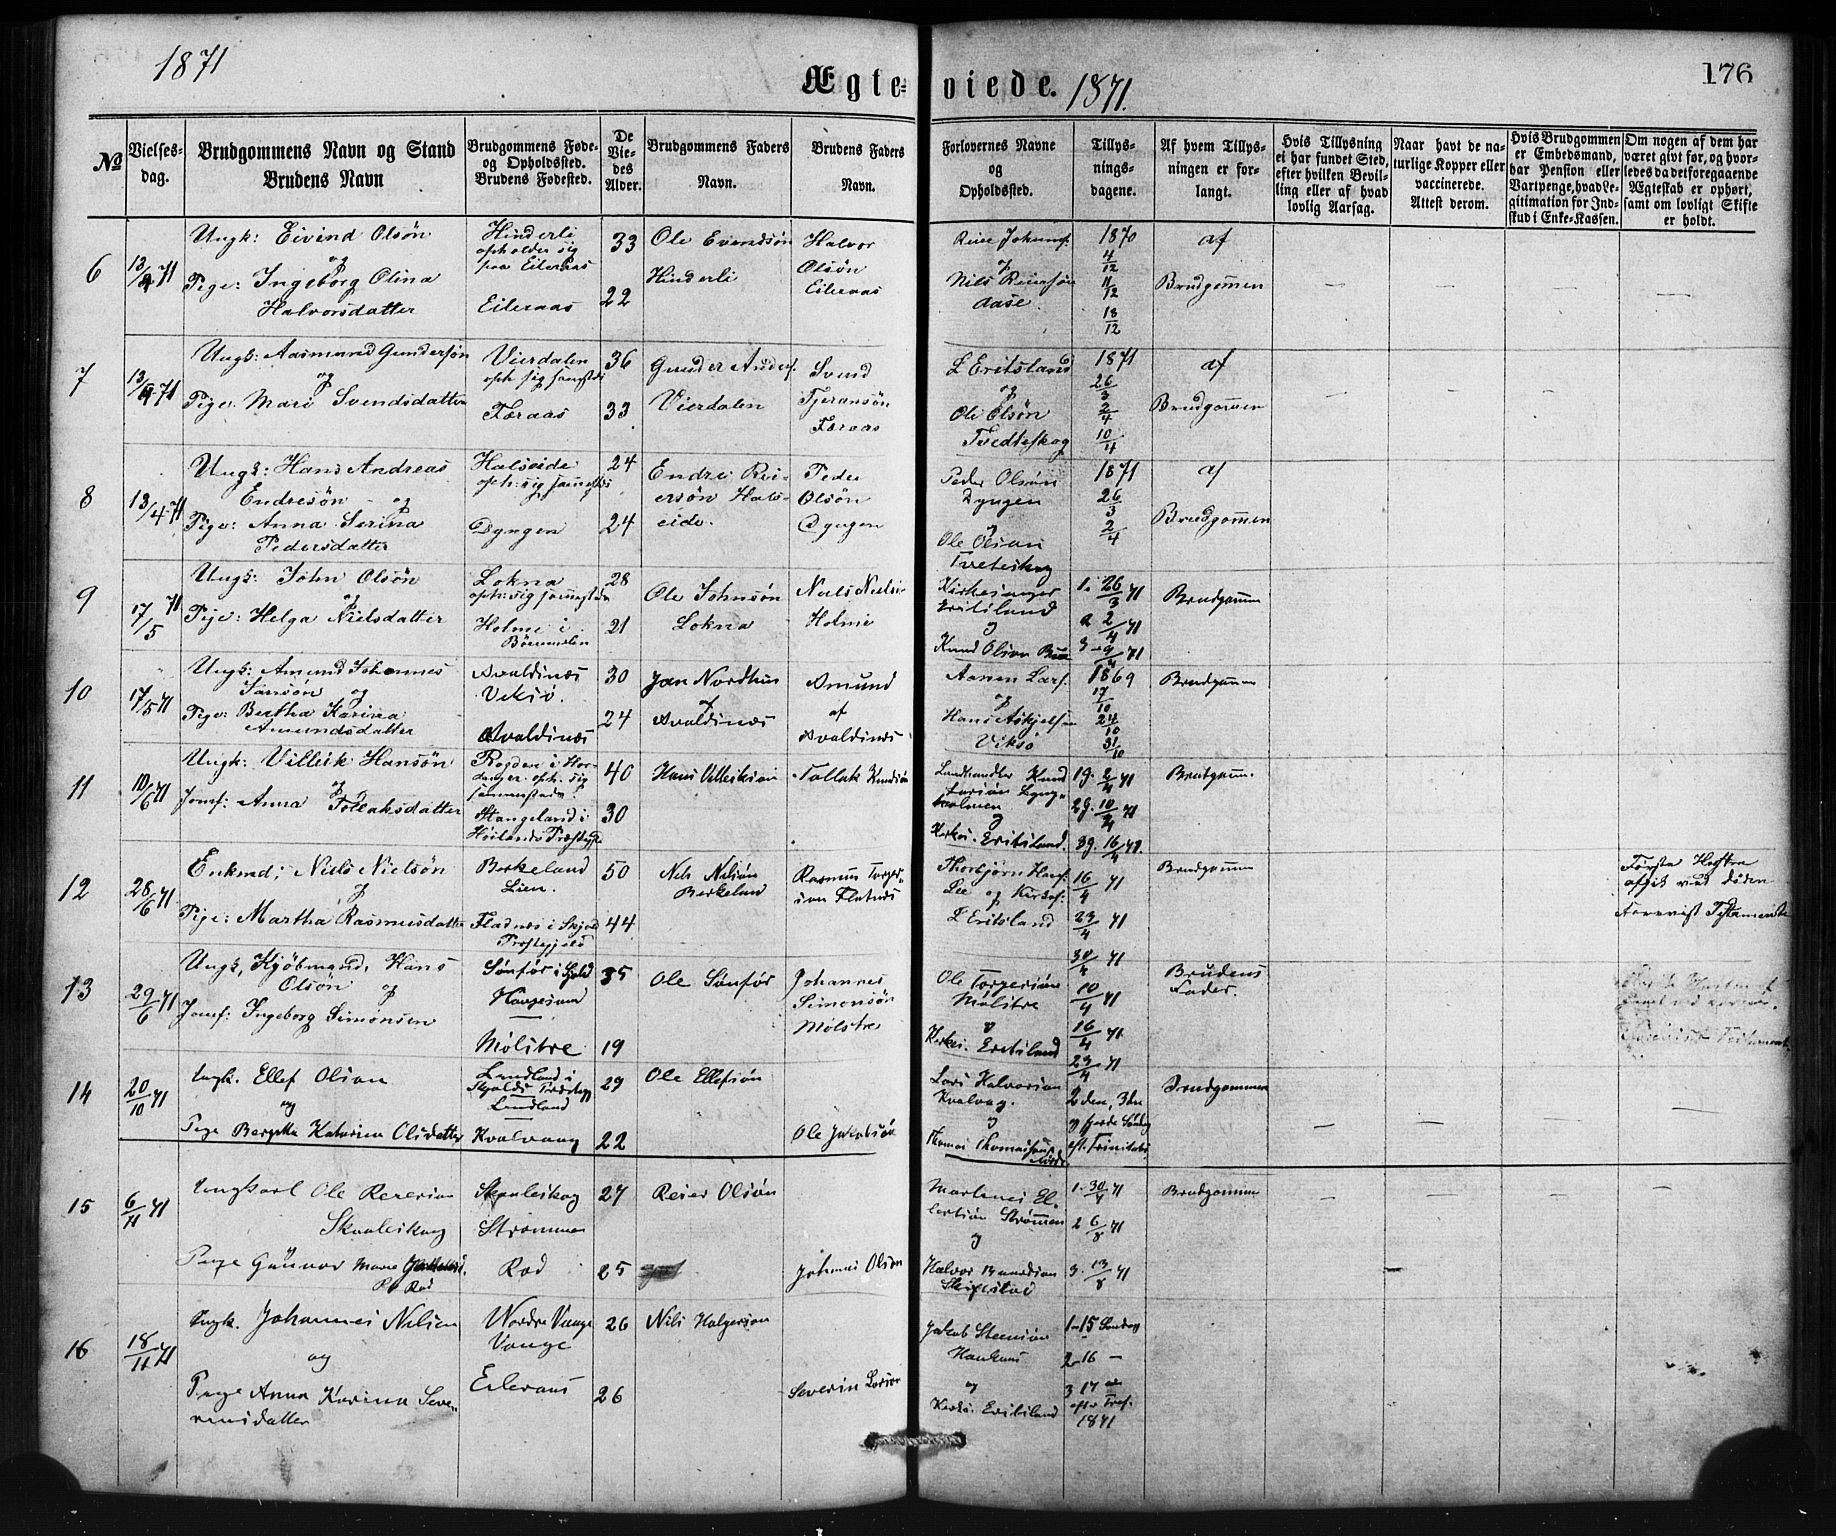 1871
Ægte-viede. 1871.
176
No
Vielses-dag.
Brudgommens Navn og Stand
Brudens Navn
Brudgommens Føde- og Opholdssted.
Brudens Fødested.
De Viedes Alder.
Brudgommens Faders Navn.
Brudens Faders Navn.
Forlovernes Navne og Opholdssted.
Tillysningsdagene.
Af hvem Tillysningen er forlangt.
Hvis Tillysning ei har fundet Sted, efter hvilken Bevilling eller af hvad lovlig Aarsag.
Naar havt de naturlige Kopper eller vaccinerede. Attest derom.
Hvis Brudgommen er Embedsmand, har Pension eller Vartpenge, hvad Legitimation for Indskud i Enke-Kassen.
Om nogen af dem har været givt før, og hvorledes da det foregaaende Ægteskab er ophørt, samt om lovligt Skifte er holdt.
6
13/4 71
Ungk: Eivind Olsøn
og
Pige: Ingeborg Olina
Halvorsdatter
Hinderli
opholder sig
paa Eileraas
Eileraas
33
22
Ole Evendsøn
Hinderli
Halvor
Olsøn
Eileraas
Nils Reiersøn
Aase.
1870
4/12
11/12
18/12
af
Brudgommen
7
13/4 71
Ungk: Aasmund Gundersøn
og
Pige: Mari Svendsdatter
Vierdalen
oph: sig samsteds
Færaas
36
33
Gunder Anders.
Vierdalen
Svend
Tjeransøn
Færaas
L Eritsland
og
Ole Olsøn
Tvedteskog
1871
26/3
2/4
10/4
af
Brudgommen
8
13/4 71
Ungk: Hans Andreas
Endresøn og
Pige: Anna Serina
Pedersdatter
Halseide
oph: sig samsteds
Dyngen
24
24
Endre Rei-
ersøn Hals-
eide.
Peder
Olsøn
Dyngen
Peder Olsøn
Dyngen
og
Ole Olsøn
Tveteskog
1871
26/3
2/4
af
Brudgommen
9
17/5 71
Ungk: John Olsøn
og
Pige: Helga Nielsdatter
Lokna
oph: sig samsteds
Holme i
28
21
Ole Johnsøn
Lokna
Niels Nielsøn
Holme
Kirkesanger
Eritsland
og
Knud Olson
1. 26/3 71
2 2/4 71
3 9/4 71
Brudgommen
10
17/5 71
Ungk: Amund Johannes
Jansøn og
Pige: Bertha Karina
Amundsdatter
Avaldsnæs
Veksø.
Avaldsnæs
30
24
Jan Nordhus
af
Avaldsnæs
Amund
af
Avaldsnæs
Aanen Lars.
og
Hans Askjelsøn
Viksø
1869
17/10
24/10
31/10
Brudgommen
11
10/6 71
Ungk: Villeik Hansøn
og
Jomf: Anna Tollaksdatter
Stangeland i
Høilands Præstegj.
40
30
Hans Villeiksøn
Tollak Knudsøn
Landhandler Knud
og
Kirkes. Eritsland.
1g. 2/4 71
2g. 10/4 71
3g. 16/4 71.
Brudgom.
12
28/6 71
Enkmd; Niels Nielsøn
og
Pige: Martha Rasmusdatter
Berkeland
Lien.
Fladnæs i Skjold
Præstegjeld
50
44
Nils Nilsøn
Berkeland
Rasmus Torger-
søn Flatnæs
Thorbjørn Hans.
Lee og Kirkes.
L Eritsland
16/4 71
23/4 71
30/4 71
Brudgommen
Første Hustru
afgik ved Døden
Forevist Testamente
13
29/6 71
Ungk, Kjøbmand, Hans
Olsøn og
Jomf: Ingeborg Simonsen
Sønfør i Skjold
Haugesund
Mølstre
35
19
Ole Sønfør
Johannes
Simonsøn
Mølstre
Ole Torgersøn
Mølstre
og
Kirkes. Eritsland
10/4 71
16/4 71
23/4 71
Brudens
Fader.
14
20/10 71
Ungk. Ellef Olson
og
Pige Bergitha Katarina Olsdatter
Lundland i
Skjolds Præstegj.
Lundland
Kvalvaag
29
22
Ole Ellefsøn
Ole Jakobsøn
Lars Halvorsøn
Kvalvog.
og
Thomas Thomassen
2den, 3die
og fjerde Søndag
eft. Trinitatis.
Brudgommen
15
6/11 71
Ungkarl Ole Reiersøn
Skaaleskog
Pige Gunvor Marie
Rød
Skaaleskog
Strømmen
Rød
27
25
Reier Olsøn
Johannes Olson
Martines El-
lertsøn Strømmen
og
Halvor
1. 30/7 71
2 6/8 71
3. 13/8 71
Brudgommen
16
18/11 71
Ungk. Johannes Nilsen
og
Pige Anna Karina Seve-
rinsdatter
Nordre Vaage
Vaage
Eileraas
26
26
Nils Holgersøn
Severin Larson
Jakob Steensøn
Haukaas
og
Kirkes. Eritsland
1-15 Søndag
2-16 -
3 17 -
efter Tref.
1871